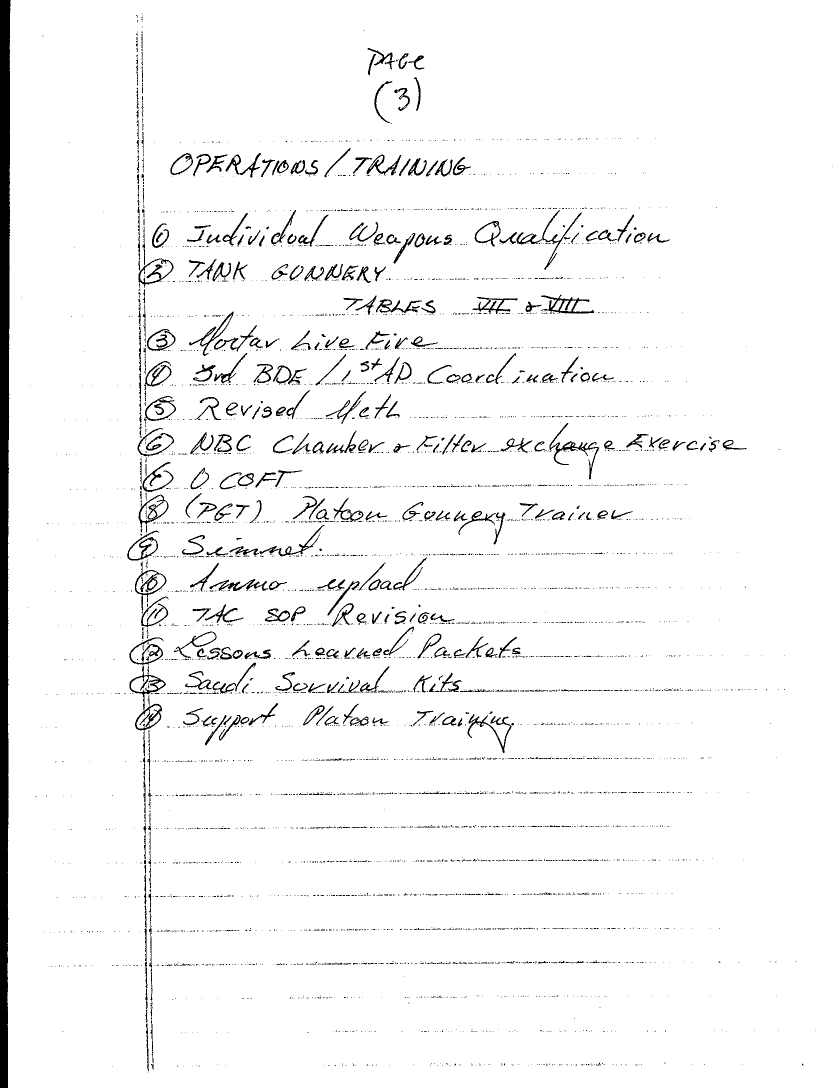 PAGE
(3)
OPERATIONS / TRAINING
① Individual Weapons Qualification
② TANK GUNNERY
TABLES VII & VIII
③ Mortar Live Fire
④ 3rd BDE / 1st AD Coordination
⑤ Revised Meth
⑥ NBC Chamber & Filter exchange Exercise
⑦ U COFT
⑧ (PGT) Platoon Gunnery Trainer
⑨ Simnet.
⑩ Ammo upload
⑪ TAC SOP Revision
⑫ Lessons Learned Packets
⑬ Saudi Survival Kits
⑭ Support Platoon Training